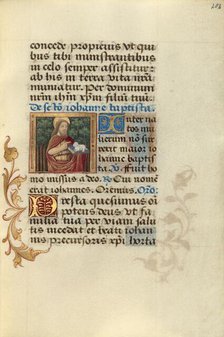 concede propicius vt qui
bus tibi ministrantibus
in celo semper assistitur
ab his in terra vita nrā
muniatur. Per dominum
nrm ihm xpm filiū tuū
de scto iohanne baptista.
Inter natos
mulierum
non sur
rexit maior io
hanne baptis
ta. V. fuit ho
mo missus a deo. R. Cui nomen
erat iohannes. Oremus. Orō.
Presta quesumus om
potens deus vt fa
milia tua per viam salu
tis incedat et beati ioha
nis precursoris xpī horta